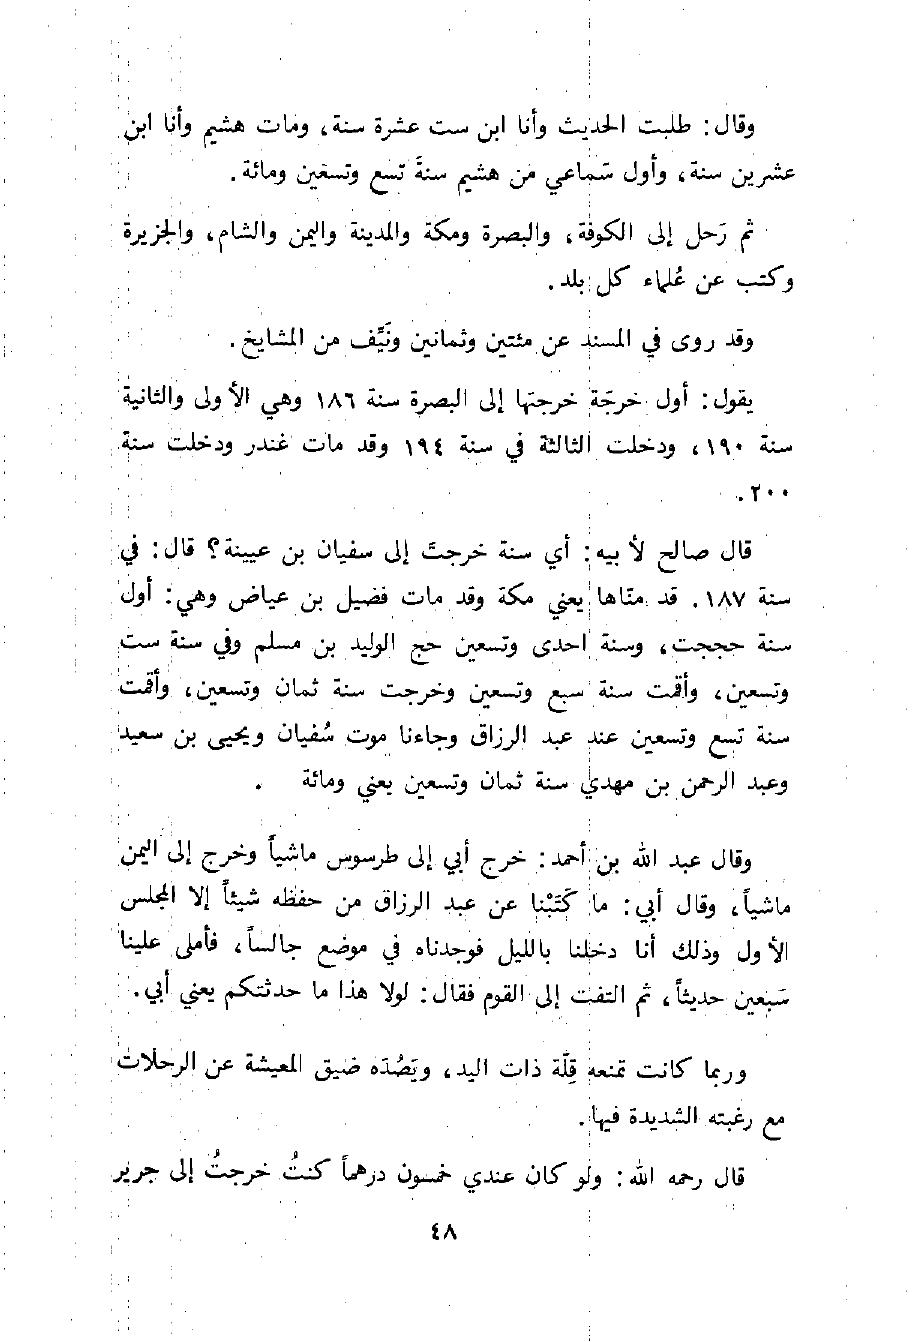 وقال: طلبت الحديث وأنا ابن ست عشرة سنة، ومات هشيم وأنا ابن
عشرين سنة، وأول سَماعي من هشيم سنةَ تسع وتسعين ومائة.
ثم رَحل إلى الكوفة، والبصرة ومكة والمدينة واليمن والشام، والجزيرة
وكتب عن عُلماء كل بلد.
وقد روى في المسند عن مئتين وثمانين ونَيِّف من المشايخ.
يقول: أول خرجَة خرجتها إلى البصرة سنة ١٨٦ وهي الأولى والثانية
سنة ١٩٠، ودخلت الثالثة في سنة ١٩٤ وقد مات غندر ودخلت سنة
٢٠٠.
قال صالح لأبيه: أي سنة خرجتَ إلى سفيان بن عيينة؟ قال: في
سنة ١٨٧. قد متاها يعني مكة وقد مات فضيل بن عياض وهي: أول
سنة حججت، وسنة احدى وتسعين حج الوليد بن مسلم وفي سنة ست
وتسعين، وأقمت سنة سبع وتسعين وخرجت سنة ثمان وتسعين، وأقمت
سنة تسع وتسعين عند عبد الرزاق وجاءنا موت سُفيان ويحيى بن سعيد
وعبد الرحمن بن مهدي سنة ثمان وتسعين يعني ومائة .
وقال عبد الله بن أحمد: خرج أبي إلى طرسوس ماشياً وخرج إلى اليمن
ماشياً، وقال أبي: ما كَتَبْنا عن عبد الرزاق من حفظه شيئاً إلا المجلس
الأول وذلك أنا دخلنا بالليل فوجدناه في موضع جالساً، فأملى علينا
سَبعين حديثاً، ثم التفت إلى القوم فقال: لولا هذا ما حدثتكم يعني أبي.
وربما كانت تمنعه قِلّة ذات اليد، ويَصُدّه ضيق المعيشة عن الرحلات
مع رغبته الشديدة فيها.
قال رحمه الله: ولو كان عندي خمسون درهماً كنتُ خرجتُ إلى جرير
٤٨